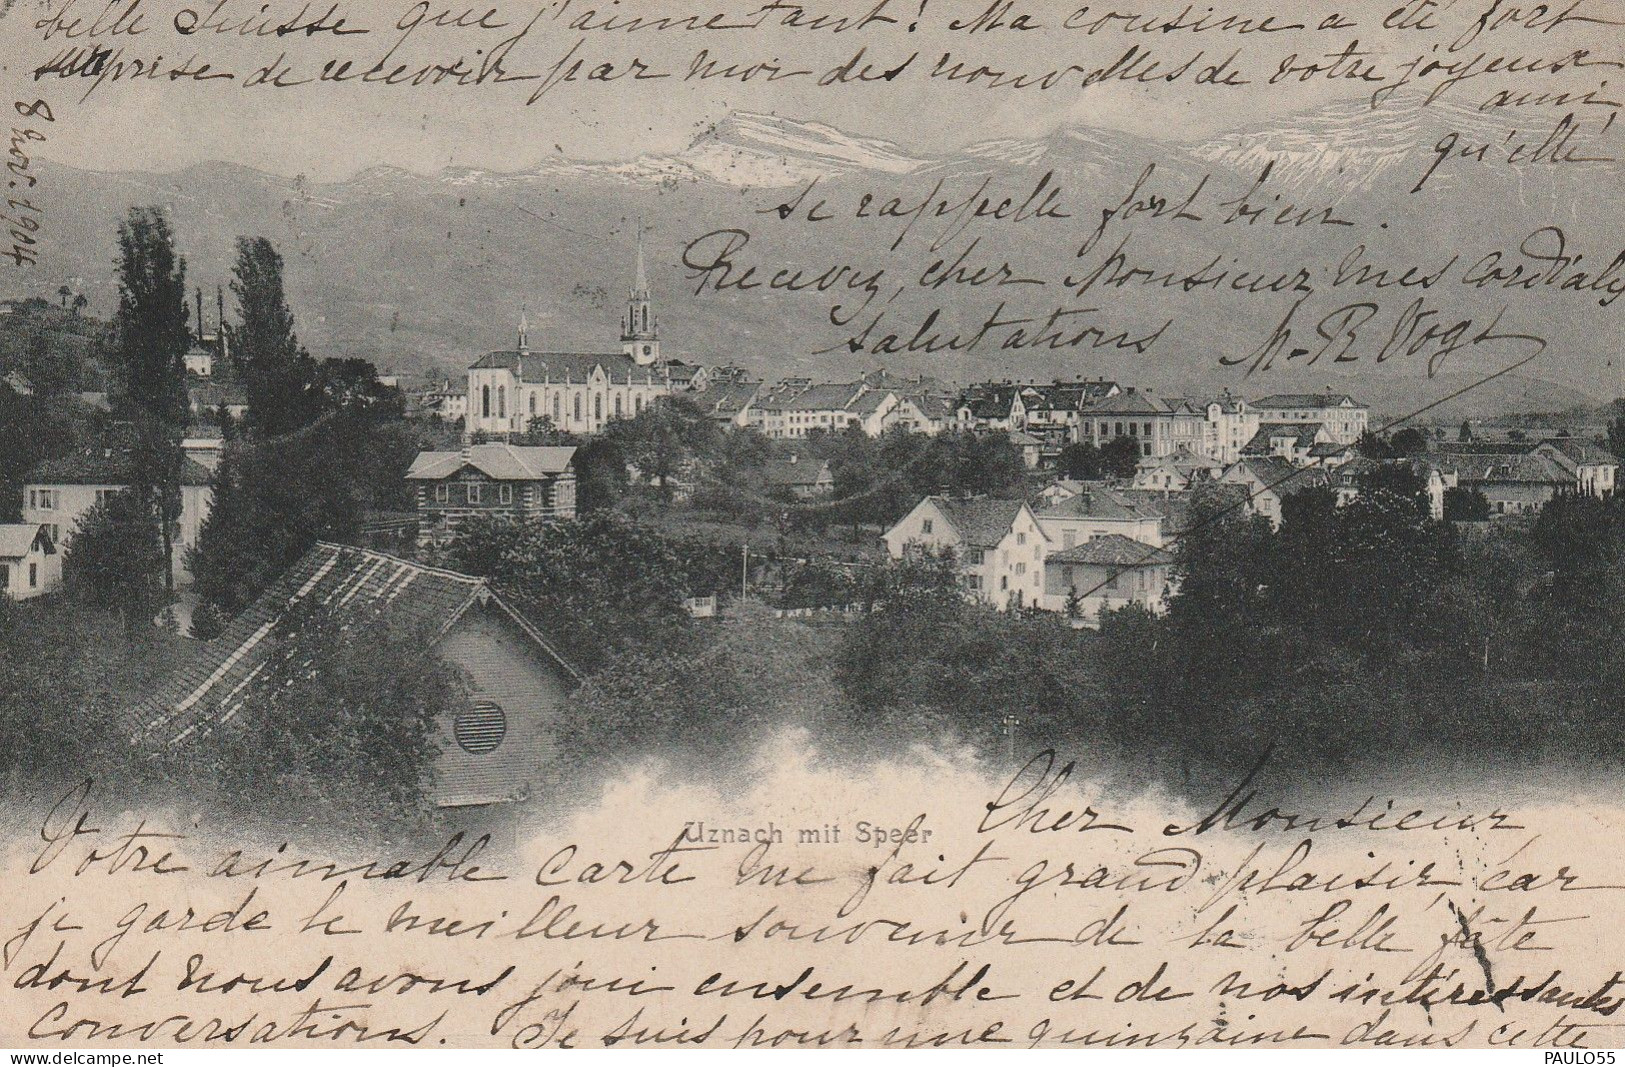 8 Nov. 1904
Uznach mit Speer
Cher Monsieur,
Votre aimable carte me fait grand plaisir, car
je garde le meilleur souvenir de la belle fête
dont nous avons joui ensemble et de nos intéressantes
conversations. Je suis pour une quinzaine dans cette
belle Suisse que j'aime tant! Ma cousine a été fort
surprise de recevoir par moi des nouvelles de votre joyeux
ami
qu'elle
se rappelle fort bien.
Recevez, cher Monsieur, mes cordiales
salutations M-R Vogt
PAULO55